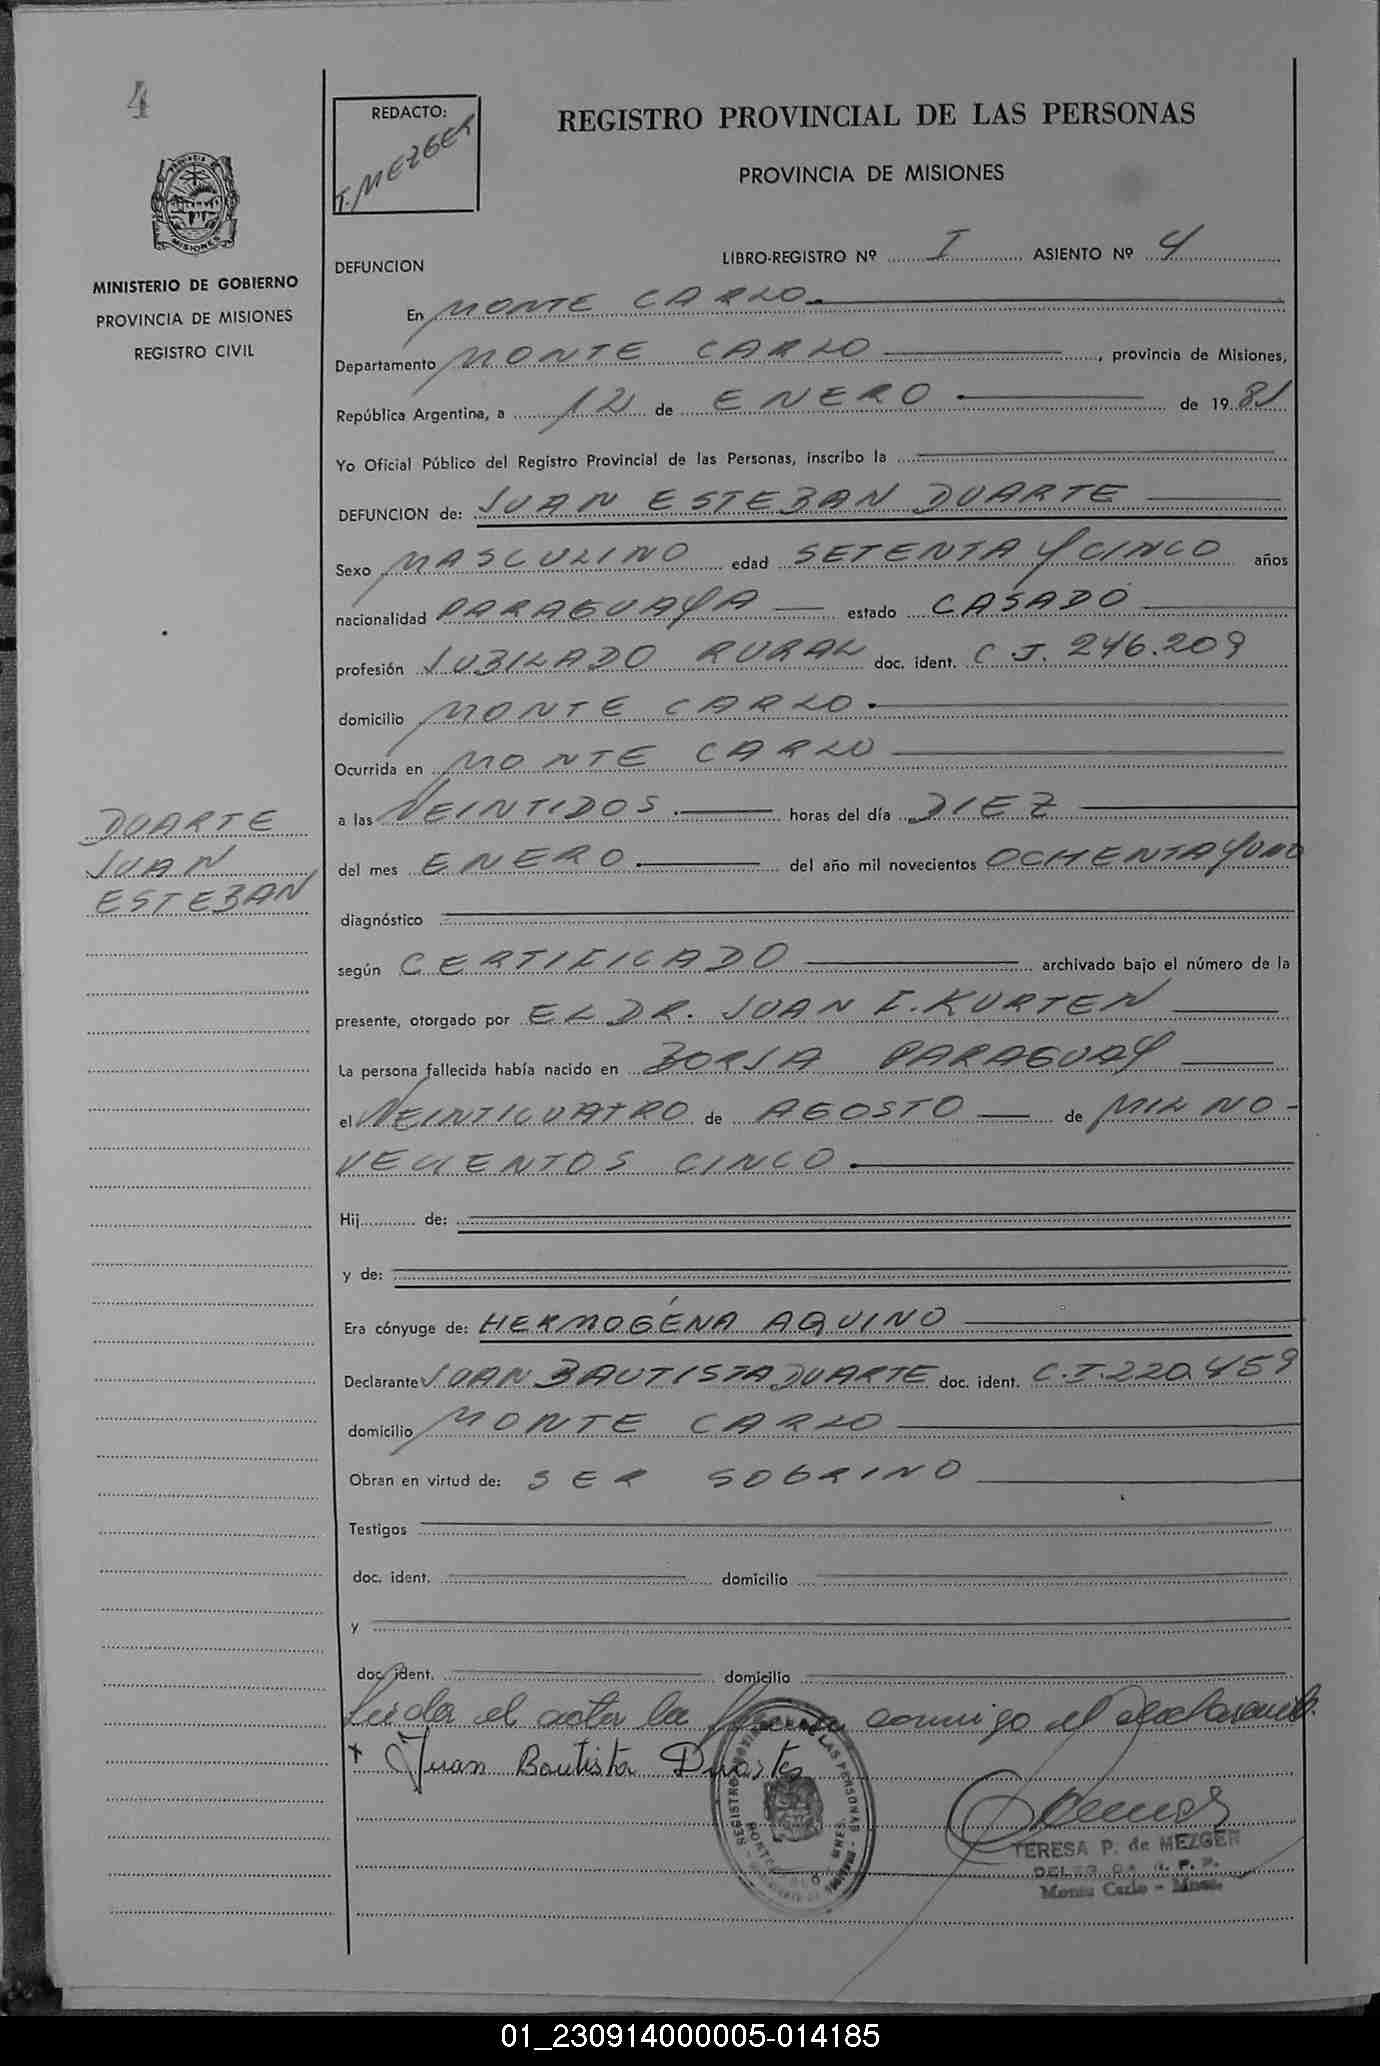 4
REDACTO:
T. MEZGER
REGISTRO PROVINCIAL DE LAS PERSONAS
PROVINCIA DE MISIONES
MISIONES
MINISTERIO DE GOBIERNO
PROVINCIA DE MISIONES
REGISTRO CIVIL
DEFUNCION
LIBRO-REGISTRO Nº I ASIENTO Nº 4
En MONTE CARLO
Departamento MONTE CARLO, provincia de Misiones,
República Argentina, a 12 de ENERO de 1981
Yo Oficial Público del Registro Provincial de las Personas, inscribo la
DEFUNCION de: JUAN ESTEBAN DUARTE
Sexo MASCULINO edad SETENTA Y CINCO años
nacionalidad PARAGUAYA estado CASADO
profesión JUBILADO RURAL doc. ident. C J. 246.209
domicilio MONTE CARLO
Ocurrida en MONTE CARLO
a las VEINTIDOS horas del día DIEZ
del mes ENERO del año mil novecientos OCHENTA Y UNO
DUARTE
JUAN
ESTEBAN
diagnóstico
según CERTIFICADO archivado bajo el número de la
presente, otorgado por EL DR. JUAN I. KURTEN
La persona fallecida había nacido en BORJA PARAGUAY
el VEINTICUATRO de AGOSTO de MIL NO-
VECIENTOS CINCO
Hij de:
y de:
Era cónyuge de: HERMOGÉNA AQUINO
Declarante JUAN BAUTISTA DUARTE doc. ident. C.I. 220.459
domicilio MONTE CARLO
Obran en virtud de: SER SOBRINO
Testigos
doc. ident. domicilio
y
doc. ident. domicilio
Leida el acta la firma conmigo el declarante.
x Juan Bautista Duarte
TERESA P. de MEZGER
Monte Carlo - Mnes.
01_230914000005-014185